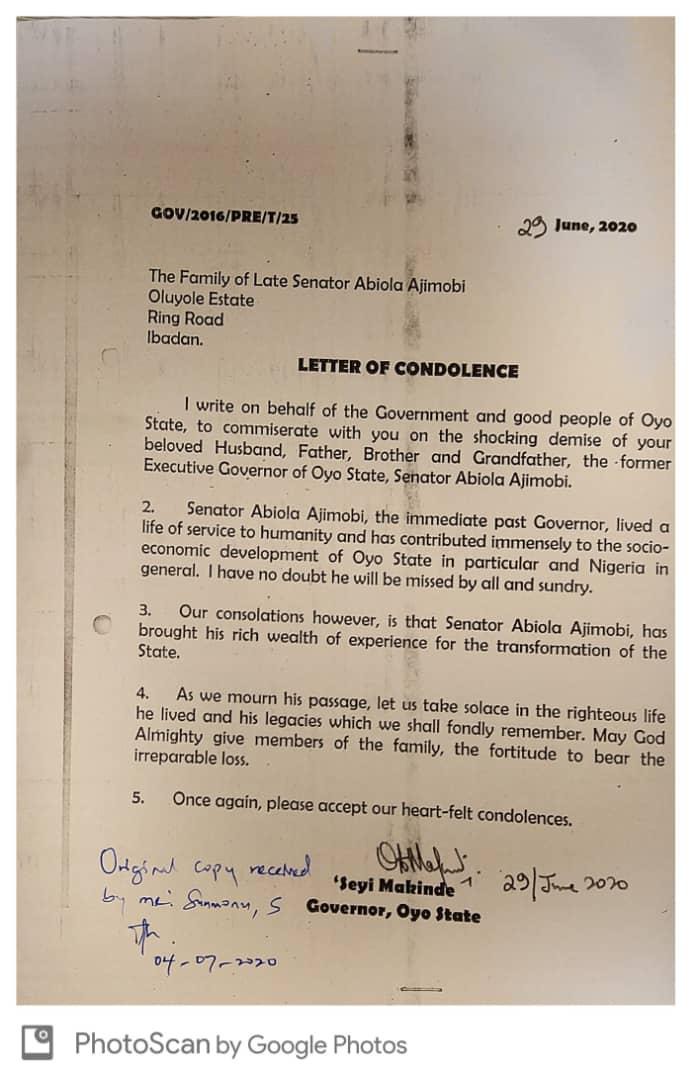 GOV/2016/PRE/T/25
29 June, 2020
The Family of Late Senator Abiola Ajimobi
Oluyole Estate
Ring Road
Ibadan.
LETTER OF CONDOLENCE
I write on behalf of the Government and good people of Oyo
State, to commiserate with you on the shocking demise of your
beloved Husband, Father, Brother and Grandfather, the former
Executive Governor of Oyo State, Senator Abiola Ajimobi.
2. Senator Abiola Ajimobi, the immediate past Governor, lived a
life of service to humanity and has contributed immensely to the socio-
economic development of Oyo State in particular and Nigeria in
general. I have no doubt he will be missed by all and sundry.
3. Our consolations however, is that Senator Abiola Ajimobi, has
brought his rich wealth of experience for the transformation of the
State.
4. As we mourn his passage, let us take solace in the righteous life
he lived and his legacies which we shall fondly remember. May God
Almighty give members of the family, the fortitude to bear the
irreparable loss.
5. Once again, please accept our heart-felt condolences.
'Seyi Makinde
29/June 2020
Governor, Oyo State
Original copy received
by me: Sunmonu, S
04-07-2020
PhotoScan by Google Photos